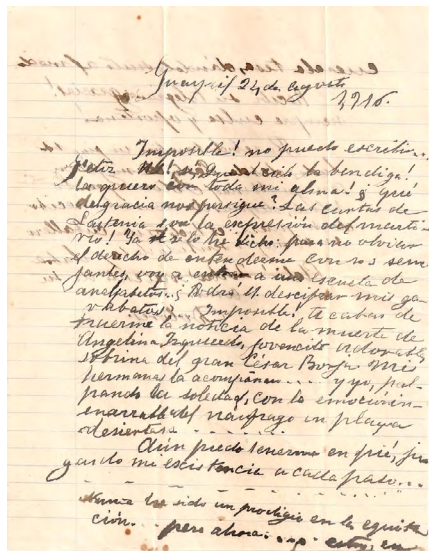 Guayaquil 24 de agosto
1916.
Imposible! no puedo escribir...
la bendiga!
la quiero con toda mi alma! ¿ qué
desgracia nos persigue? Las cartas de
son la expresión del marti-
rio! Ya se lo he dicho: para no olvidar
el derecho de entenderme con sus sem
jantes, voy a entrar a una escuela de
analfabetos. ¿ Podrá U. descifrar mis ga-
rabatos? Imposible! Acaban de
traerme la noticia de la muerte de
Angelina Izquierdo, jovencita adorable,
sobrina del gran César Borja. Mis
hermanas la acompañan.... y yo, pal-
pando la soledad, con la emoción in-
enarrable del náufrago en playa
desierta....
Aún puedo tenerme en pié, ju-
gando mi existencia a cada paso...
Nunca he sido un prodigio en la equita
ción.... pero ahora.... estoy en